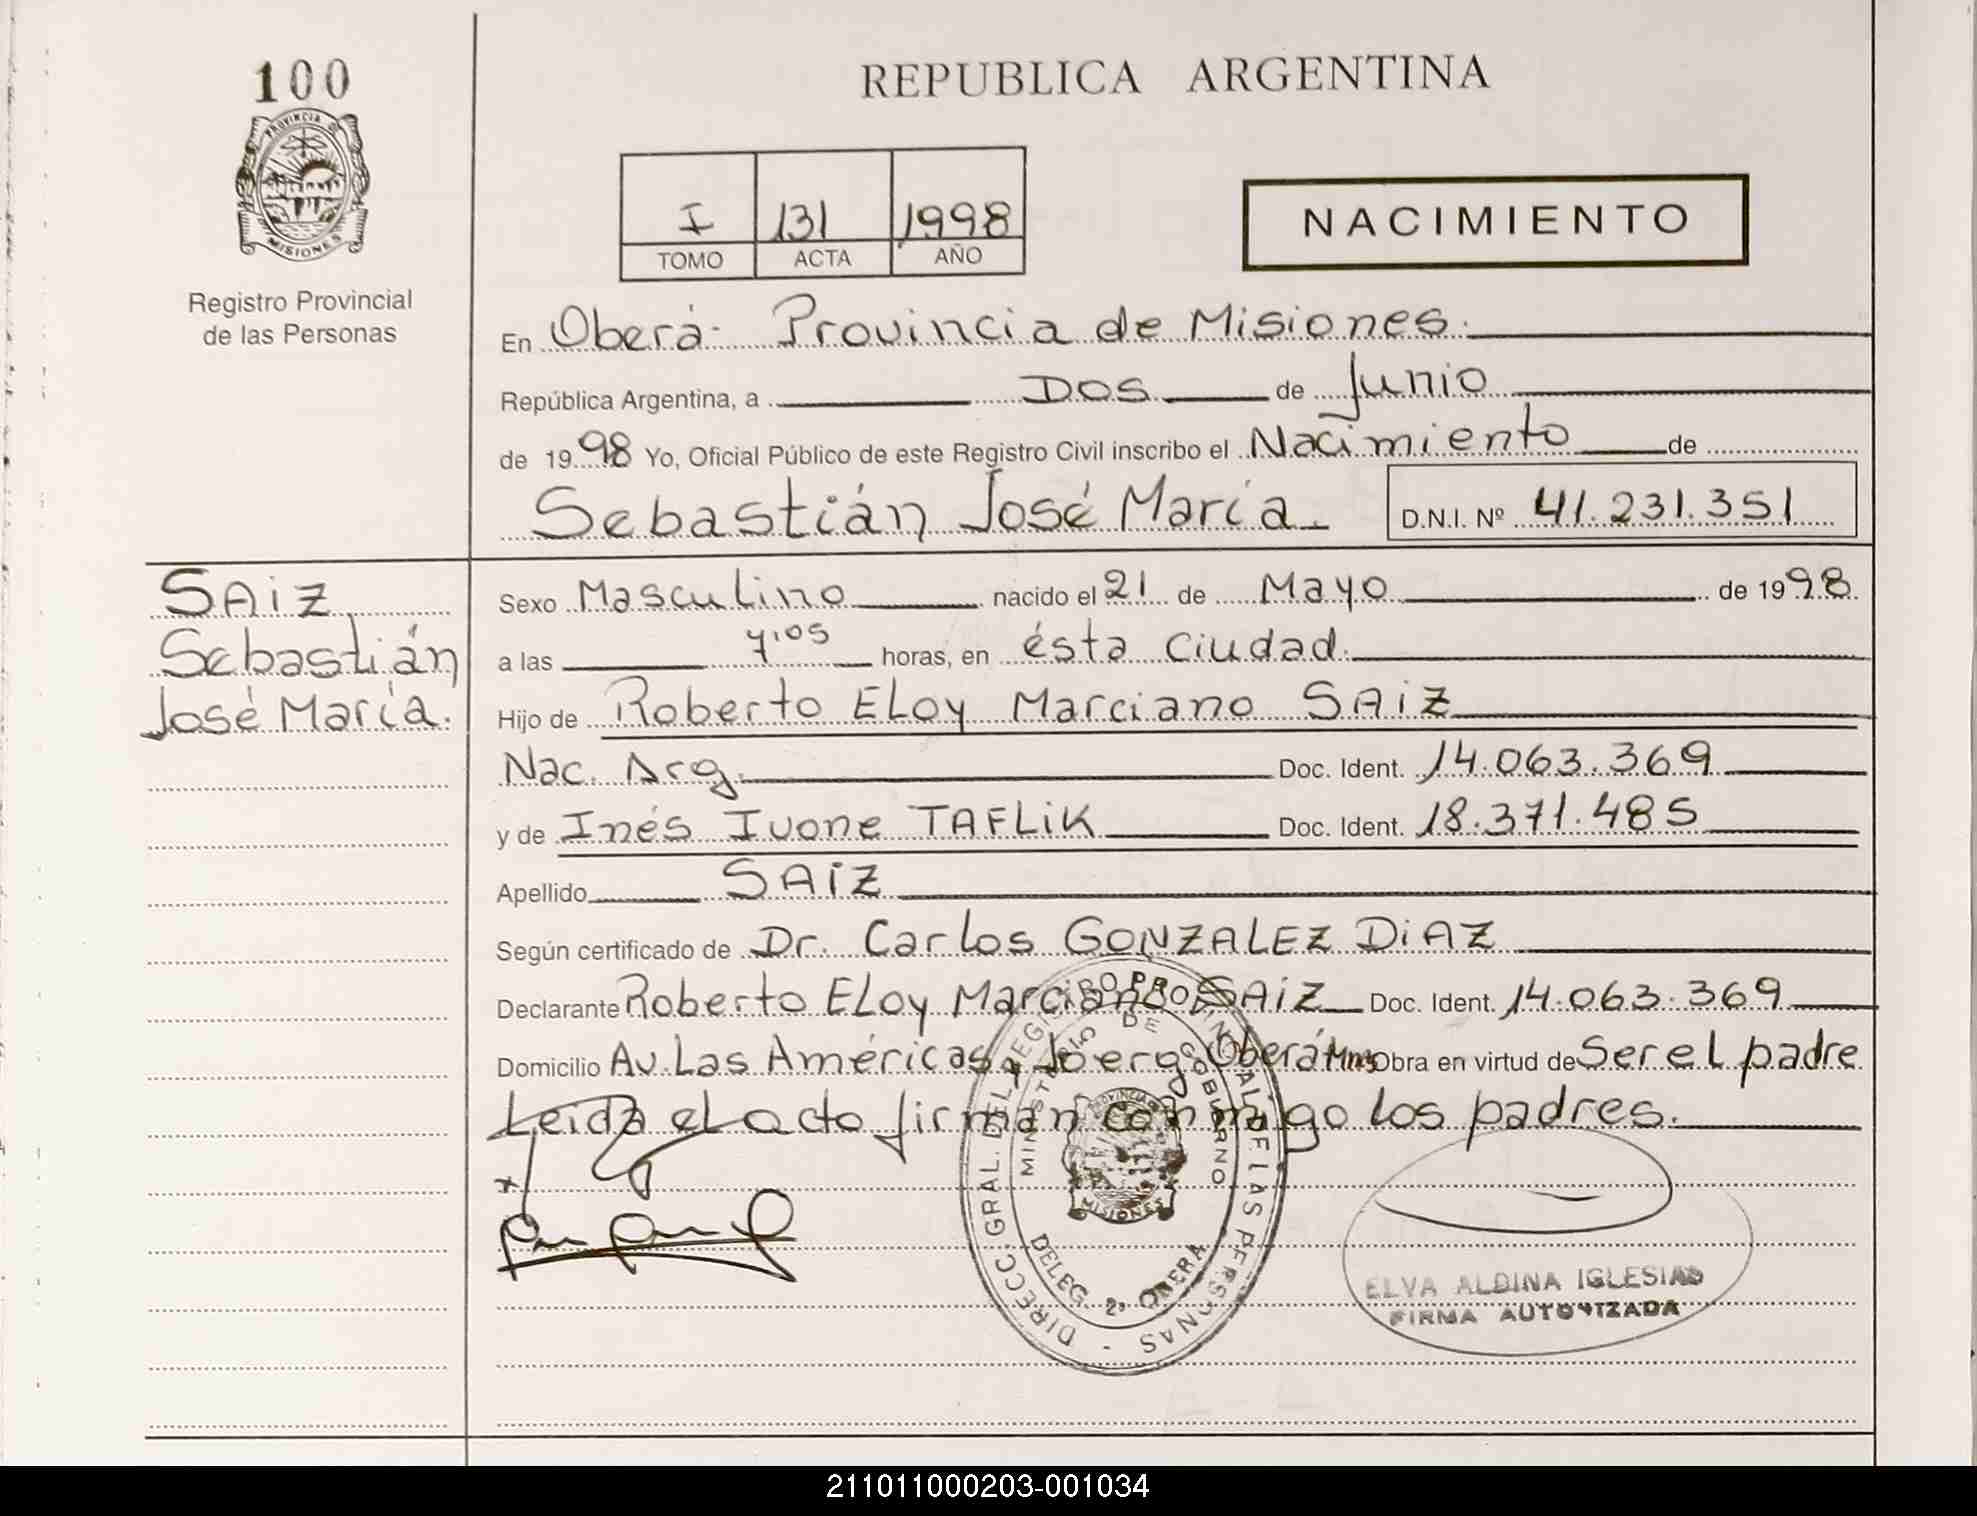 100
PROVINCIA DE
MISIONES
Registro Provincial
de las Personas
REPUBLICA ARGENTINA
I 131 1998
TOMO ACTA AÑO
NACIMIENTO
En Oberá - Provincia de Misiones.
República Argentina, a DOS de Junio
de 1998 Yo, Oficial Público de este Registro Civil inscribo el Nacimiento de
Sebastián José María D.N.I. Nº 41.231.351
SAiZ
Sebastián
José María.
Sexo Masculino nacido el 21 de Mayo de 1998
a las horas, en ésta Ciudad.
Hijo de Roberto ELoy Marciano SAiZ
Nac. Arg. Doc. Ident. 14.063.369
y de Inés Ivone TAFLiK Doc. Ident. 18.371.485
Apellido SAiZ
Según certificado de Dr. Carlos GONZALEZ DiAZ
Declarante Roberto ELoy Marciano SAiZ Doc. Ident. 14.063.369
Domicilio Av. Las Américas y Oberá Mnes Obra en virtud de Ser el padre
Leida el acto firman conmigo los padres.
DIRECC. GRAL. DEL REGISTRO PROVINCIAL DE LAS PERSONAS -
MINISTERIO DE GOBIERNO
PROVINCIA DE
MISIONES
DELEG. 2ª OBERA
ELVA ALBINA IGLESIAS
FIRMA AUTORIZADA
211011000203-001034